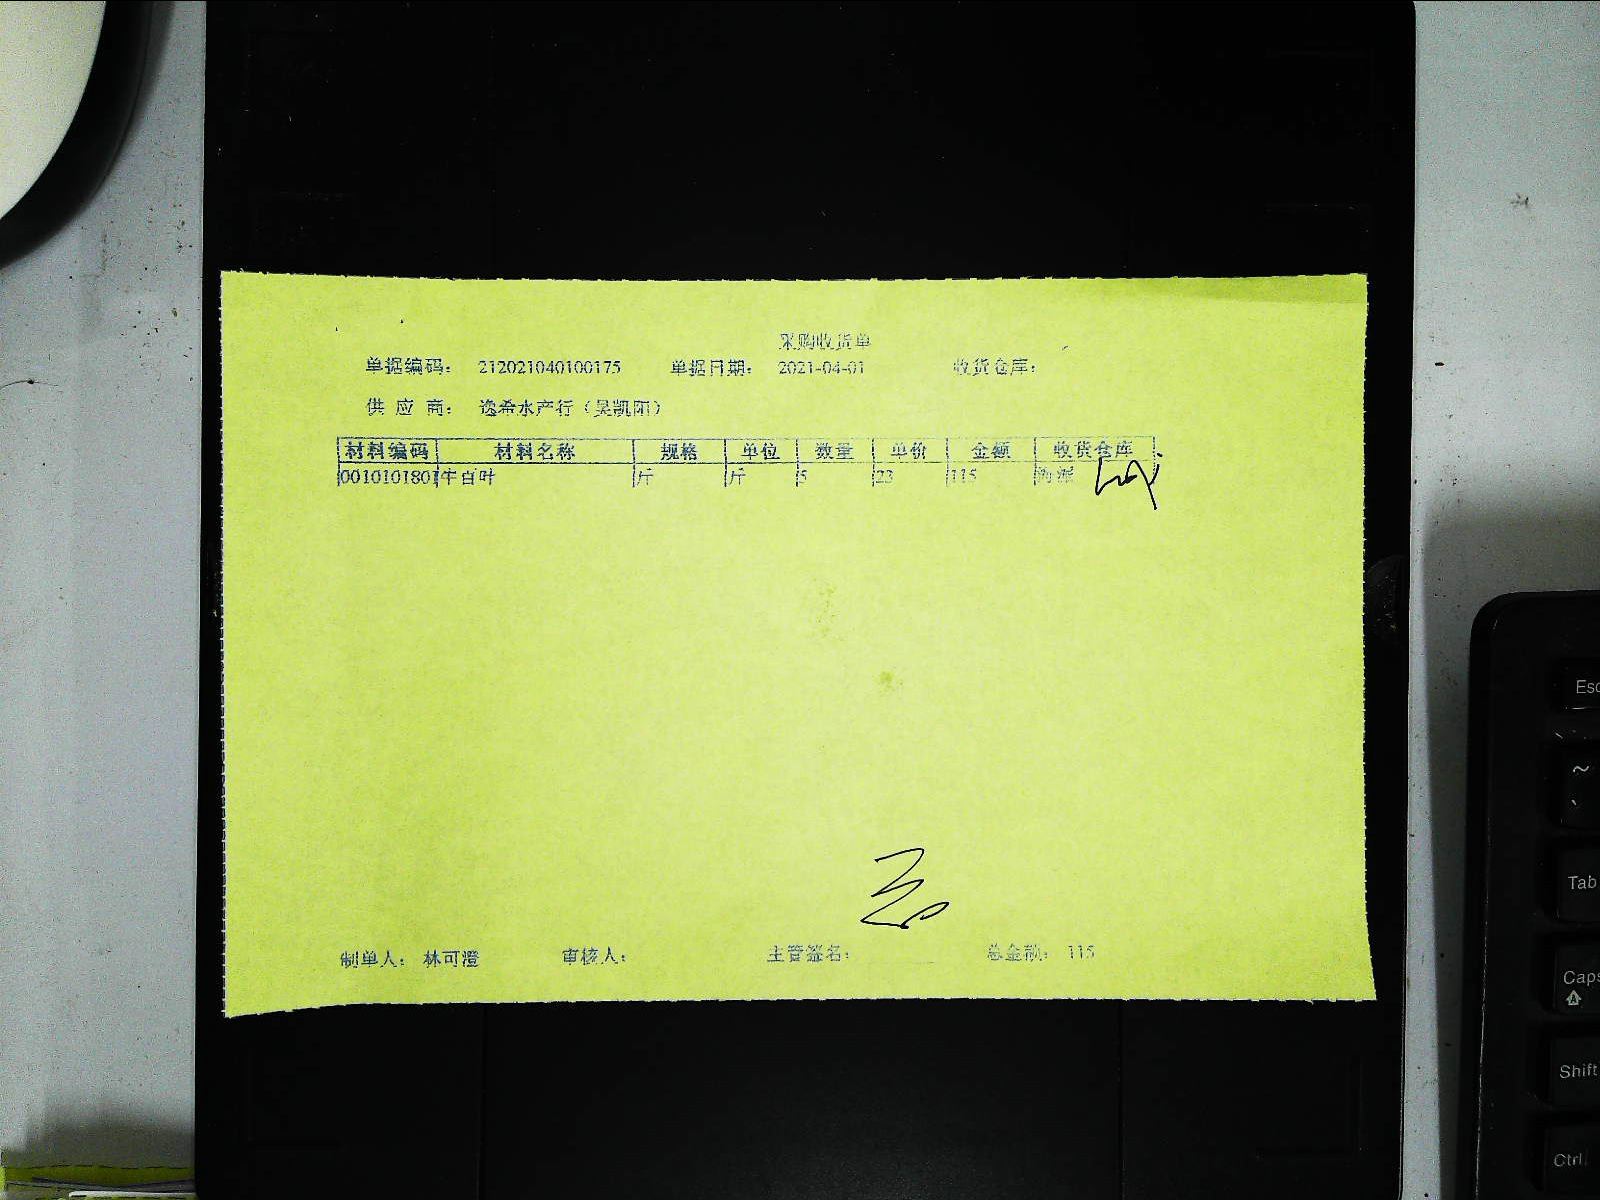 采购收货单
单据编码: 212021040100175 单据日期: 2021-04-01 收货仓库:
供应商: 逸希水产行（吴凯阳）
材料编码 材料名称 规格 单位 数量 单价 金额 收货仓库
0010101801 牛百叶 斤 斤 5 23 115 海派
制单人: 林可澄 审核人: 主管签名: 总金额: 115
Esc
~
、
Tab
Caps
A
Shift
Ctrl